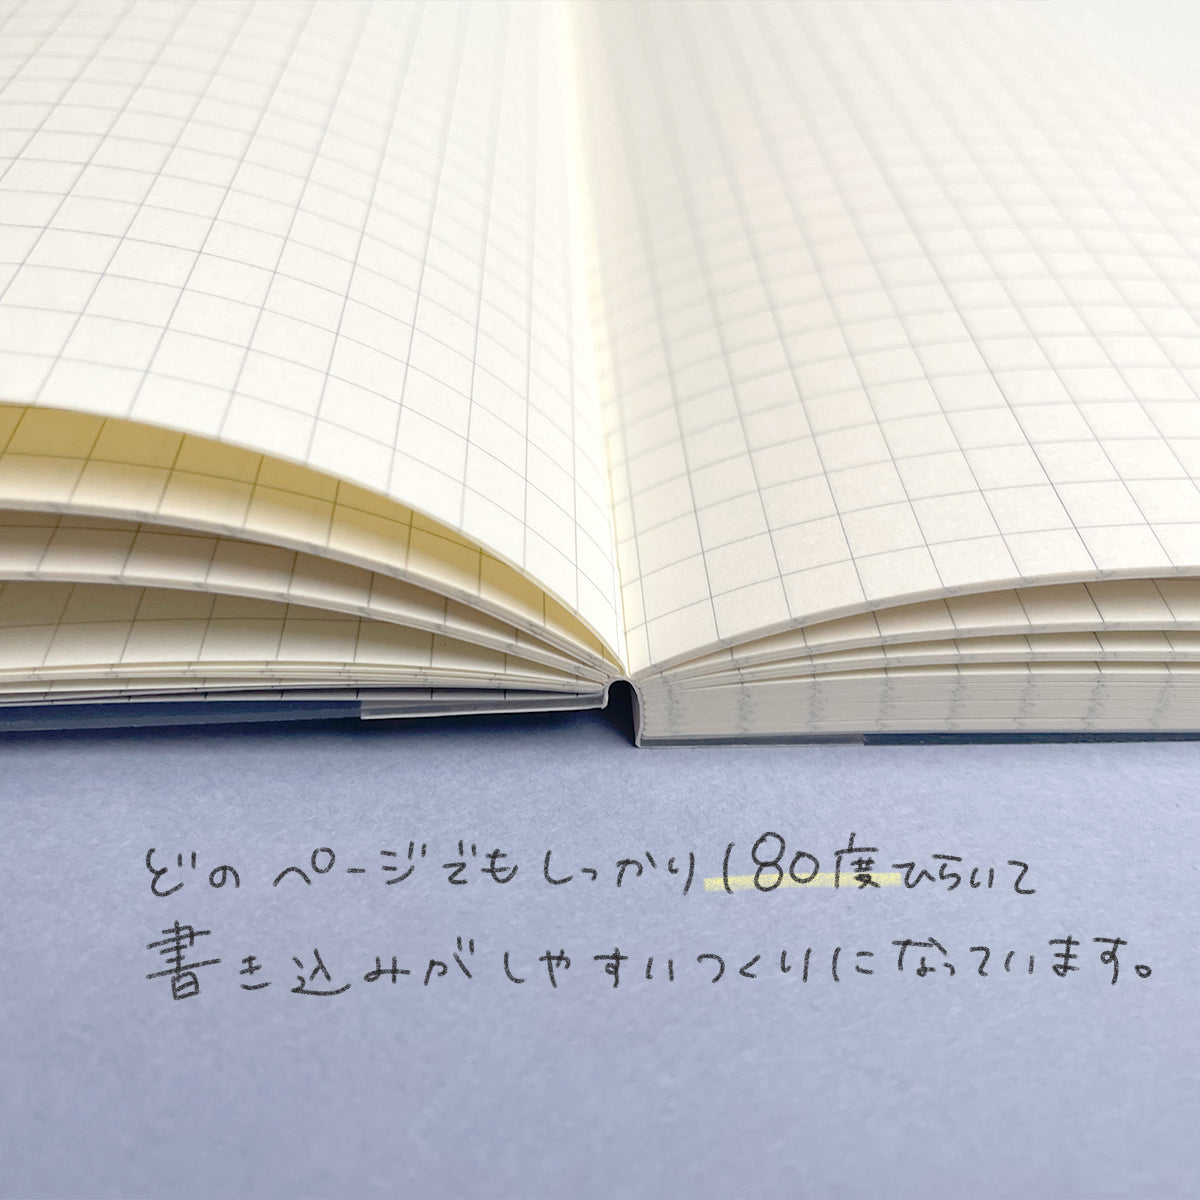 どのページでもしっかり180度ひらいて
書き込みがしやすいつくりになっています。